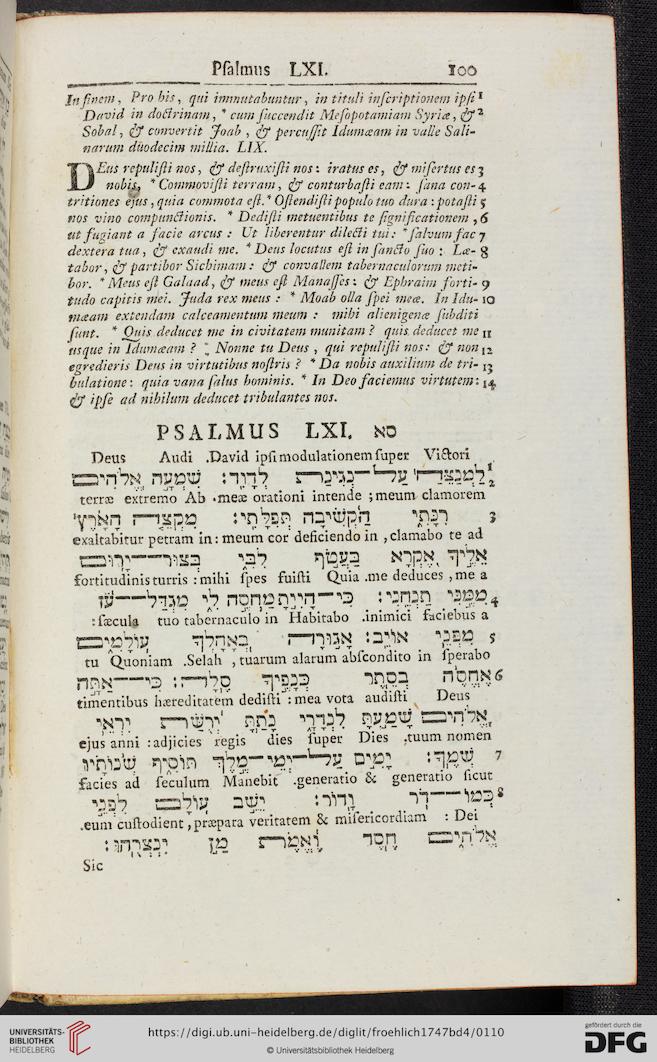 Pſalmus LXI. 100
In finem, Pro his, qui immutabuntur, in tituli inſcriptionem ipſi 1
David in doctrinam, * cum ſuccendit Meſopotamiam Syriæ, & 2
Sobal, & convertit Joab, & percuſſit Idumæam in valle Sali-
narum düodecim millia. LIX.
DEus repuliſti nos, & deſtruxiſti nos: iratus es, & miſertus es 3
nobis, * Commoviſti terram, & conturbaſti eam: ſana con- 4
tritiones ejus, quia commota eſt. * Oſtendiſti populo tuo dura: potaſti 5
nos vino compunctionis. * Dediſti metuentibus te ſignificationem, 6
ut fugiant a facie arcus: Ut liberentur dilecti tui: * ſalvum fac 7
dextera tua, & exaudi me. * Deus locutus eſt in ſancto ſuo: Læ- 8
tabor, & partibor Sichimam: & convallem tabernaculorum meti-
bor. * Meus eſt Galaad, & meus eſt Manaſſes: & Ephraim forti- 9
tudo capitis mei. Juda rex meus: * Moab olla ſpei meæ. In Idu- 10
mæam extendam calceamentum meum: mihi alienigenæ ſubditi
ſunt. * Quis deducet me in civitatem munitam? quis deducet me 11
usque in Idumæam? * Nonne tu Deus, qui repuliſti nos: & non 12
egredieris Deus in virtutibus noſtris? * Da nobis auxilium de tri- 13
bulatione: quia vana ſalus hominis. * In Deo faciemus virtutem: 14
& ipſe ad nihilum deducet tribulantes nos.
PSALMUS LXI. סא
Deus Audi .David ipſi modulationem ſuper Victori
לַמְנַצֵּחַ עַל־נְגִינַת לְדָוִד: שִׁמְעָה אֱלֹהִים 1 2
terræ extremo Ab .meæ orationi intende ;meum clamorem
רִנָּתִי הַקְשִׁיבָה תְּפִלָּתִי: מִקְצֵה הָאָרֶץ 3
exaltabitur petram in: meum cor deficiendo in ,clamabo te ad
אֵלֶיךָ אֶקְרָא בַּעֲטֹף לִבִּי בְּצוּר־יָרוּם
fortitudinis turris :mihi ſpes fuiſti Quia .me deduces ,me a
מִמֶּנִּי תַנְחֵנִי: כִּי־הָיִיתָ מַחְסֶה לִי מִגְדַּל־עֹז 4
:ſæcula tuo tabernaculo in Habitabo .inimici faciebus a
מִפְּנֵי אוֹיֵב: אָגוּרָה בְאָהָלְךָ עוֹלָמִים 5
tu Quoniam .Selah ,tuarum alarum abſcondito in ſperabo
אֶחֱסֶה בְסֵתֶר כְּנָפֶיךָ סֶּלָה: כִּי־אַתָּה 6
timentibus hæreditatem dediſti :mea vota audiſti Deus
אֱלֹהִים שָׁמַעְתָּ לִנְדָרָי נָתַתָּ יְרֻשַּׁת יִרְאֵי
ejus anni :adjicies regis dies ſuper Dies .tuum nomen
שְׁמֶךָ: יָמִים עַל־יְמֵי־מֶלֶךְ תּוֹסִיף שְׁנוֹתָיו 7
facies ad ſeculum Manebit .generatio & generatio ſicut
כְּמוֹ־דֹר וָדוֹר: יֵשֵׁב עוֹלָם לִפְנֵי 8
.eum cuſtodient, præpara veritatem & miſericordiam : Dei
אֱלֹהִים חֶסֶד וֶאֱמֶת מַן יִנְצְרֻהוּ:
Sic
UNIVERSITÄTS-
BIBLIOTHEK
HEIDELBERG
https://digi.ub.uni-heidelberg.de/diglit/froehlich1747bd4/0110
© Universitätsbibliothek Heidelberg
gefördert durch die
DFG